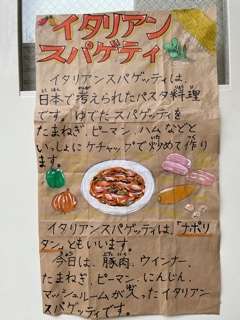 イタリアン
スパゲティ
イタリアンスパゲッティは、
日本で考えられたパスタ料理
です。ゆでたスパゲッティを
たまねぎ、ピーマン、ハムなどと
いっしょにケチャップで炒めて作り
ます。
イタリアンスパゲッティは、「ナポリ
タン」ともいいます。
今日は、豚肉、ウインナー、
たまねぎ、ピーマン、にんじん、
マッシュルームが入ったイタリアン
スパゲティです。